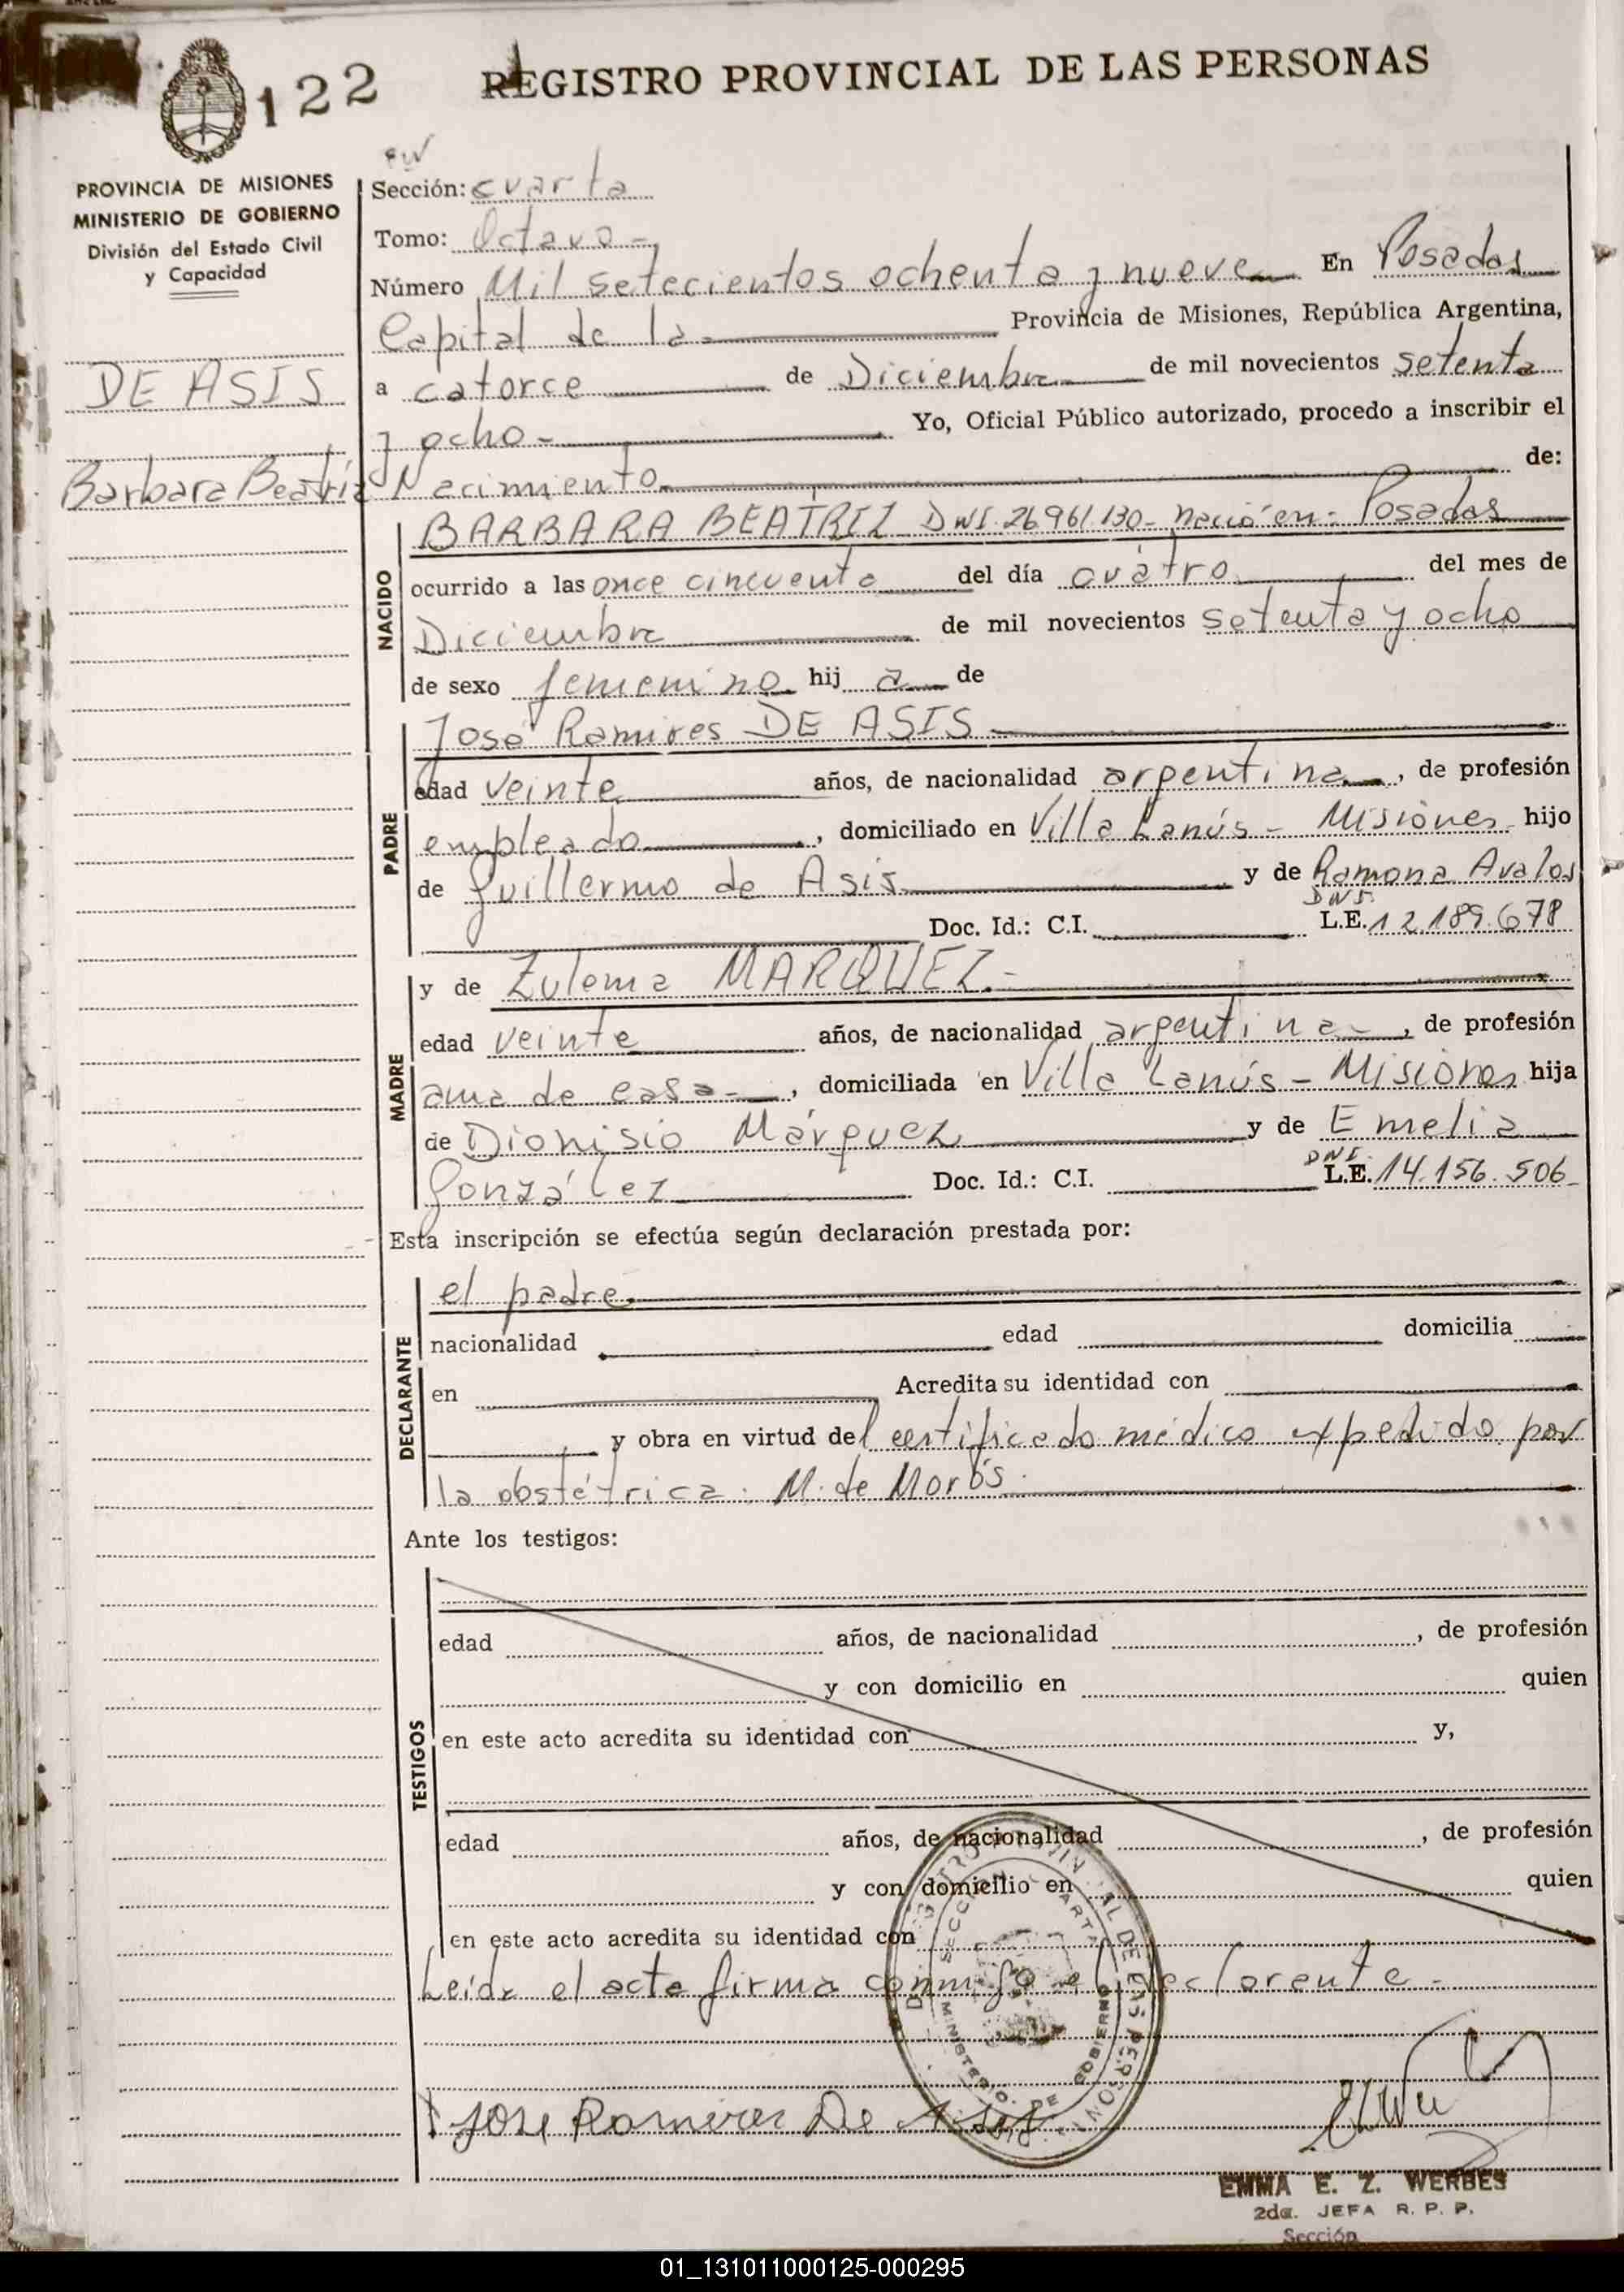 122
REGISTRO PROVINCIAL DE LAS PERSONAS
PROVINCIA DE MISIONES
MINISTERIO DE GOBIERNO
División del Estado Civil
y Capacidad
DE ASIS
Barbara Beatriz
Sección: cuarta
Tomo: Octavo -
Número Mil setecientos ochenta y nueve En Posadas
Capital de la - Provincia de Misiones, República Argentina,
a catorce de Diciembre de mil novecientos setenta
y ocho - Yo, Oficial Público autorizado, procedo a inscribir el
Nacimiento de:
NACIDO
BARBARA BEATRIZ DNI. 26.961.130- nació en: Posadas
ocurrido a las once cincuenta del día cuatro del mes de
Diciembre de mil novecientos setenta y ocho
de sexo femenino hij a de
PADRE
José Ramires DE ASIS
edad veinte años, de nacionalidad argentina, de profesión
empleado, domiciliado en Villa Lanús - Misiones hijo
de Guillermo de Asis y de Ramona Avalos
Doc. Id.: C.I. DNI. L.E. 12.189.678
MADRE
y de Zulema MARQUEZ.-
edad veinte años, de nacionalidad argentina-, de profesión
ama de casa-, domiciliada en Villa Lanús - Misiones hija
de Dionisio Márquez y de Emelia
González Doc. Id.: C.I. DNI. L.E. 14.156.506
Esta inscripción se efectúa según declaración prestada por:
DECLARANTE
el padre
nacionalidad edad domicilia
en Acredita su identidad con
y obra en virtud del certificado médico expedido por
la obstétrica: M. de Morós.
Ante los testigos:
TESTIGOS
edad años, de nacionalidad , de profesión
y con domicilio en quien
en este acto acredita su identidad con y,
edad años, de nacionalidad , de profesión
y con domicilio en quien
en este acto acredita su identidad con
Leída el acta firma conmigo el declarante -
SECCION CUARTA
MINISTERIO DE GOBIERNO
José Ramires De Asis
EMMA E. Z. WERBES
2da. JEFA R. P. P.
Sección
01_131011000125-000295